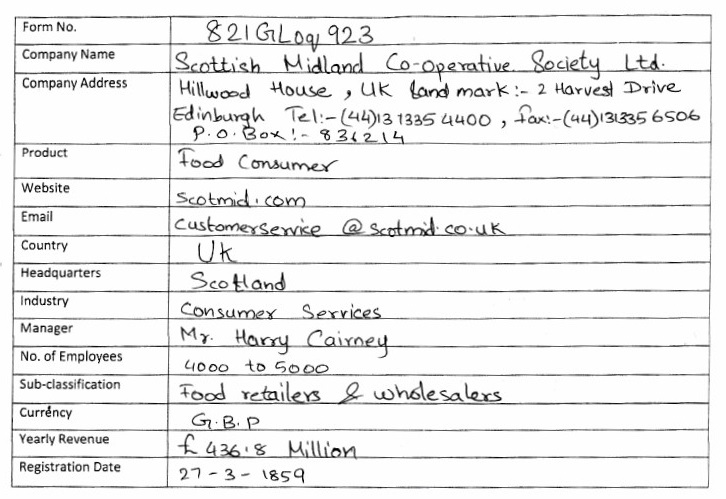 Form No. 821GLoq923
Company Name Scottish Midland Co-operative Society Ltd.
Company Address Hillwood House , UK Land mark :- 2 Harvest Drive
Edinburgh Tel:-(44)131335 4400 , fax:-(44)131335 6506
P.O.Box :- 836214
Product Food Consumer
Website scotmid.com
Email customerservice @ scotmid.co.uk
Country UK
Headquarters Scotland
Industry Consumer Services
Manager Mr. Harry Cairney
No. of Employees 4000 to 5000
Sub-classification Food retailers & wholesalers
Currency G.B.P
Yearly Revenue £ 436.8 Million
Registration Date 27-3-1859